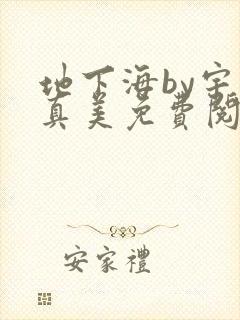 地下海by宇
真美免費閱
安家禮